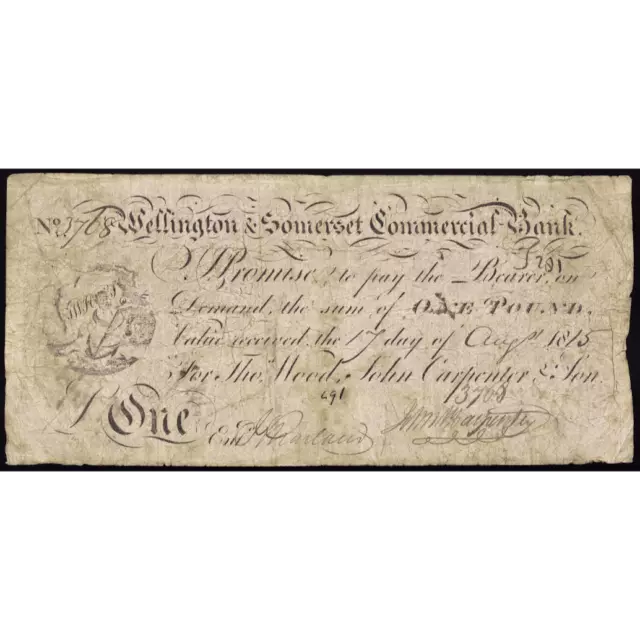 No. 3768 Wellington & Somerset Commercial Bank.
I Promise to pay the Bearer, on
Demand, the sum of ONE POUND,
Value received, the 17 day of Augt. 1815
For Thos. Wood, John Carpenter & Son.
691 3768
£ One
Entd. John Carpenter